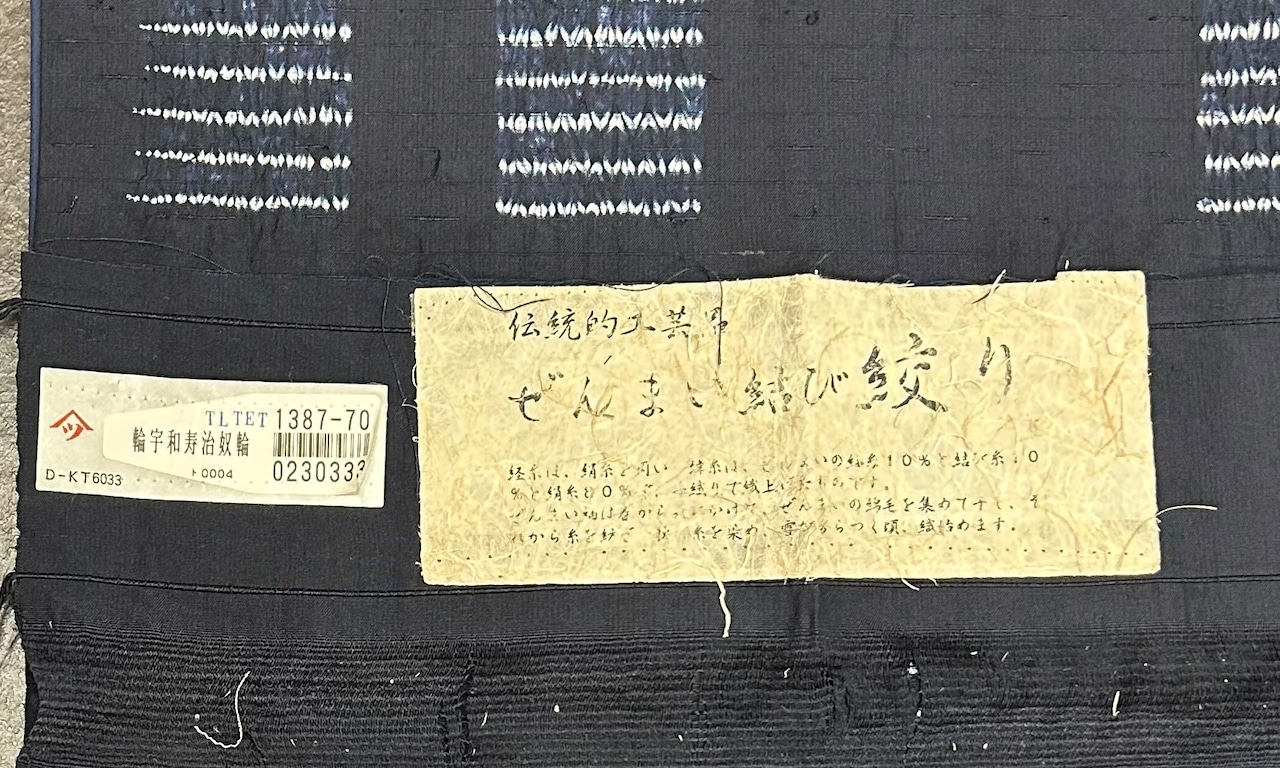 伝統的工芸品
ぜんまい結び絞り
経糸は、絹糸を用い 緯糸は、ぜんまいの綿糸10%と結び糸10
%と絹糸80%で、 絞りて織上げたものです。
ぜんまい は春から にかけて、ぜんまいの綿毛を集めて干し、そ
れから糸を紡 糸を染め、雪がちらつく頃、織始めます。
ツ
TLTET 1387-70
輪宇和寿治奴輪
D-KT6033 ト0004 0230333